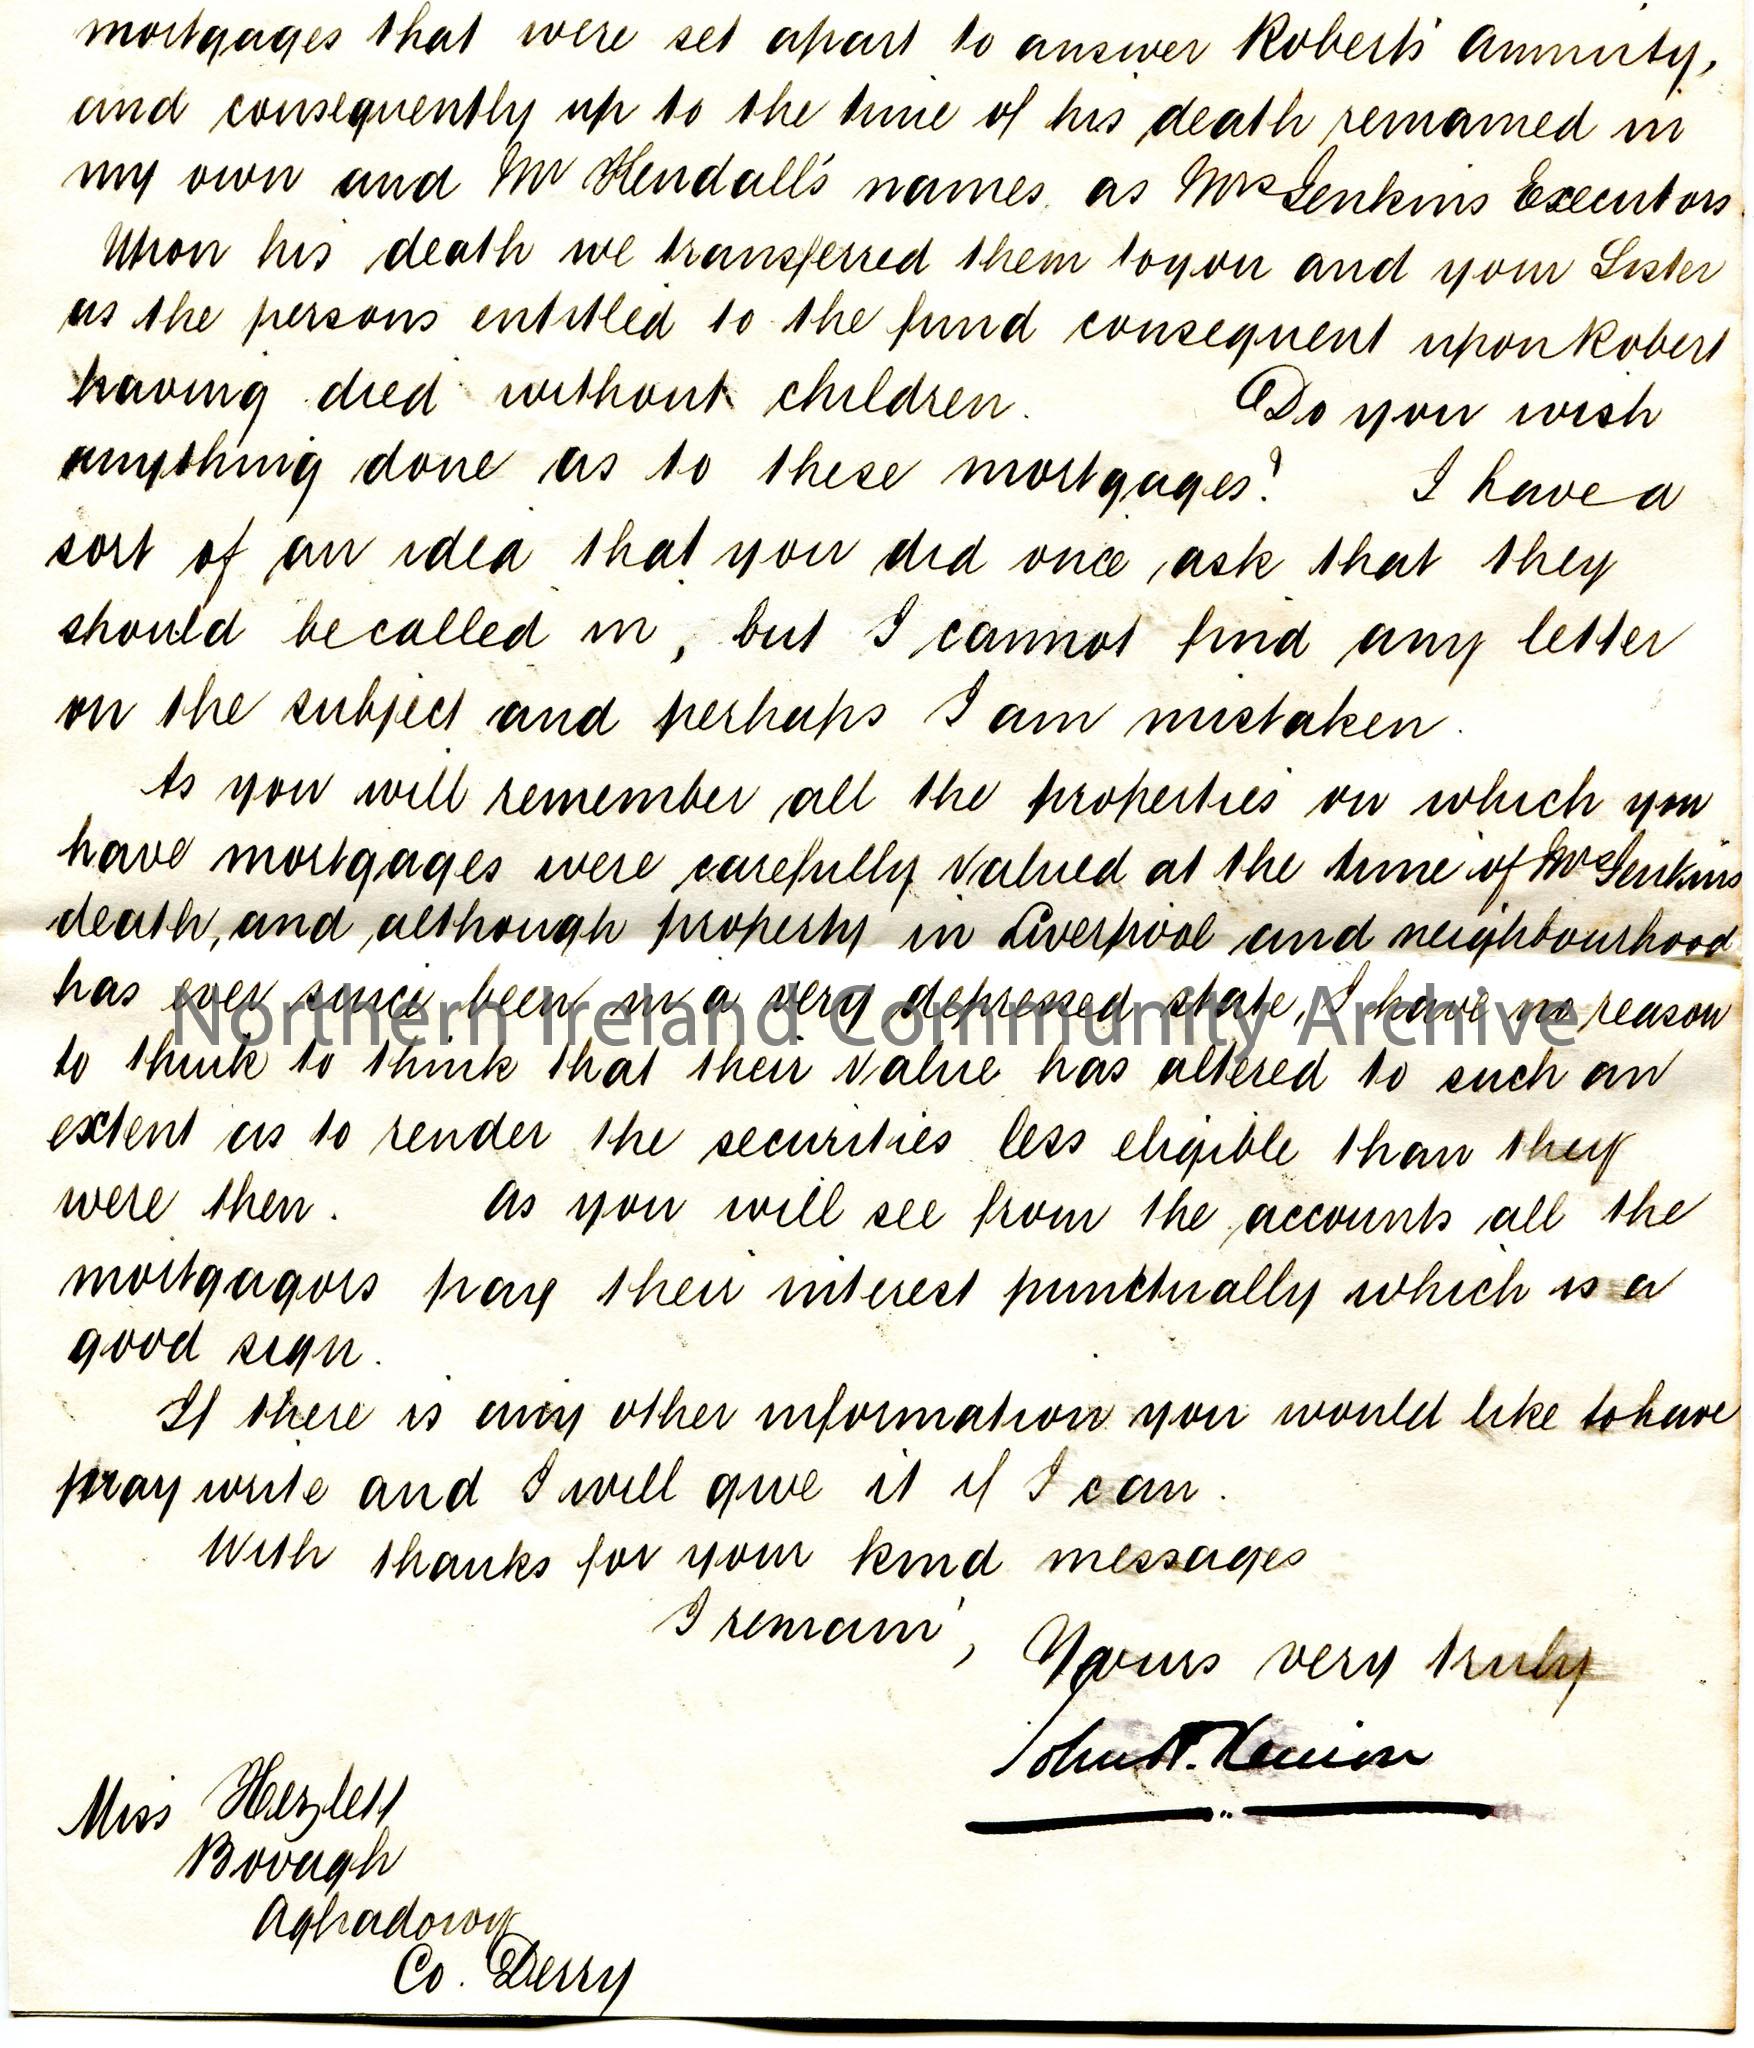 mortgages that were set apart to answer Robert's Annuity,
and consequently up to the time of his death remained in
my own and Mr Hendall's names as Mrs Jenkins Executors.
Upon his death we transferred them to you and your Sister
as the persons entitled to the fund consequent upon Robert
having died without children. Do you wish
anything done as to these mortgages? I have a
sort of an idea that you did once ask that they
should be called in, but I cannot find any letter
on the subject and perhaps I am mistaken.
As you will remember all the properties on which you
have mortgages were carefully valued at the time of Mrs Jenkins
death, and although property in Liverpool and neighbourhood
has ever since been in a very depressed state, I have no reason
Northern Ireland Community Archive
to think to think that their value has altered to such an
extent as to render the securities less eligible than they
were then. As you will see from the accounts all the
mortgagors pay their interest punctually which is a
good sign.
If there is any other information you would like to have
pray write and I will give it if I can.
With thanks for your kind messages
I remain,
Yours very truly
John
Miss Hezlett
Bovagh
Aghadowy
Co. Derry